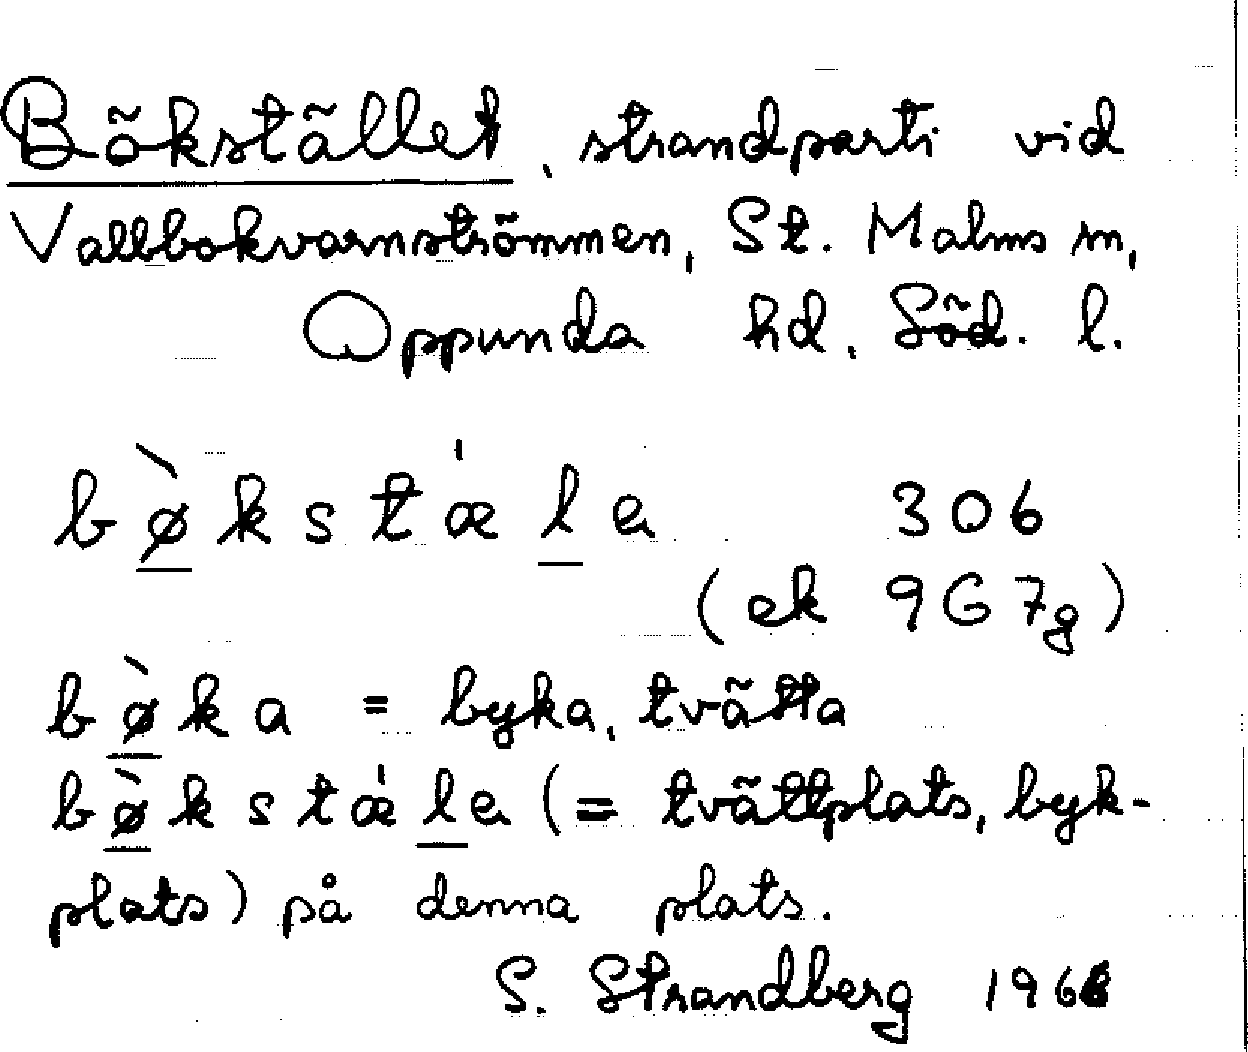 Bökstället, strandparti vid
Vallbokvarnströmmen, St. Malms sn,
Oppunda hd, Söd. l.
bø̀kstæ̍le 306
(ek 9G7g)
bø̀ka = byka, tvätta
bø̀kstæ̍le (= tvättplats, byk-
plats) på denna plats.
S. Strandberg 1966